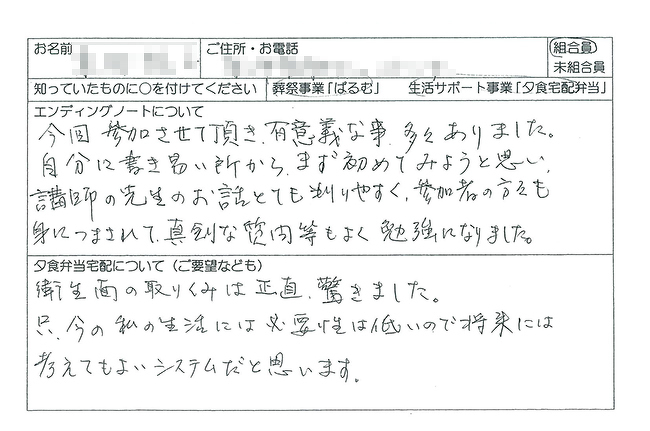 お名前
ご住所・お電話
組合員
未組合員
知っていたものに○を付けてください
葬祭事業「ぱるむ」
生活サポート事業「夕食宅配弁当」
エンディングノートについて
今回参加させて頂き、有意義な事、多々ありました。
自分に書き易い所から、まず初めてみようと思い、
講師の先生のお話とても判りやすく、参加者の方々も
身につまされて、真剣な質問等もよく勉強になりました。
夕食弁当宅配について（ご要望なども）
衛生面の取りくみは正直、驚きました。
只、今の私の生活には必要性は低いので将来には
考えてもよいシステムだと思います。